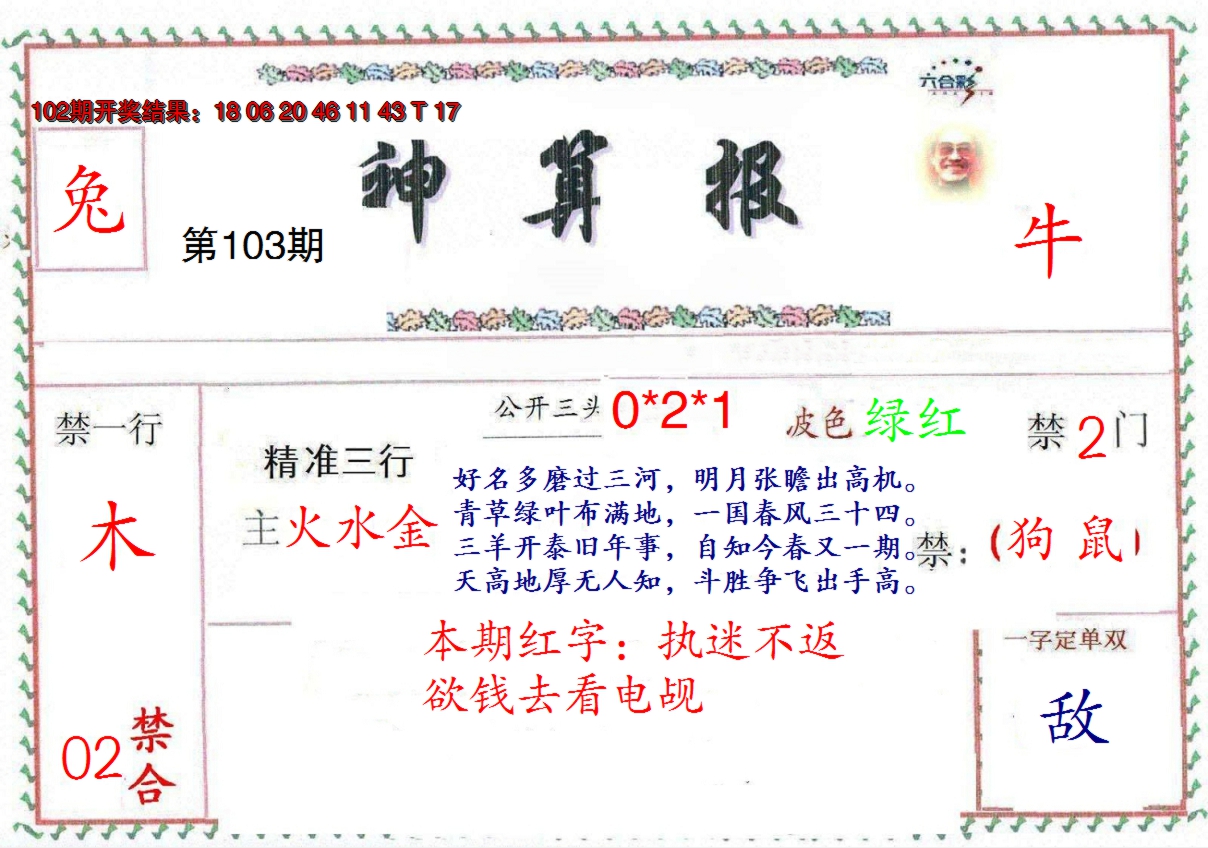 六合彩
102期开奖结果：18 06 20 46 11 43 T 17
神算报
兔
第103期
牛
公开三头 0*2*1
波色 绿红
禁一行
禁2门
精准三行
主火水金
好名多磨过三河，明月张瞻出高机。
青草绿叶布满地，一国春风三十四。
三羊开泰旧年事，自知今春又一期。
天高地厚无人知，斗胜争飞出手高。
禁：（狗 鼠）
木
本期红字：执迷不返
欲钱去看电觇
一字定单双
敌
02
禁合